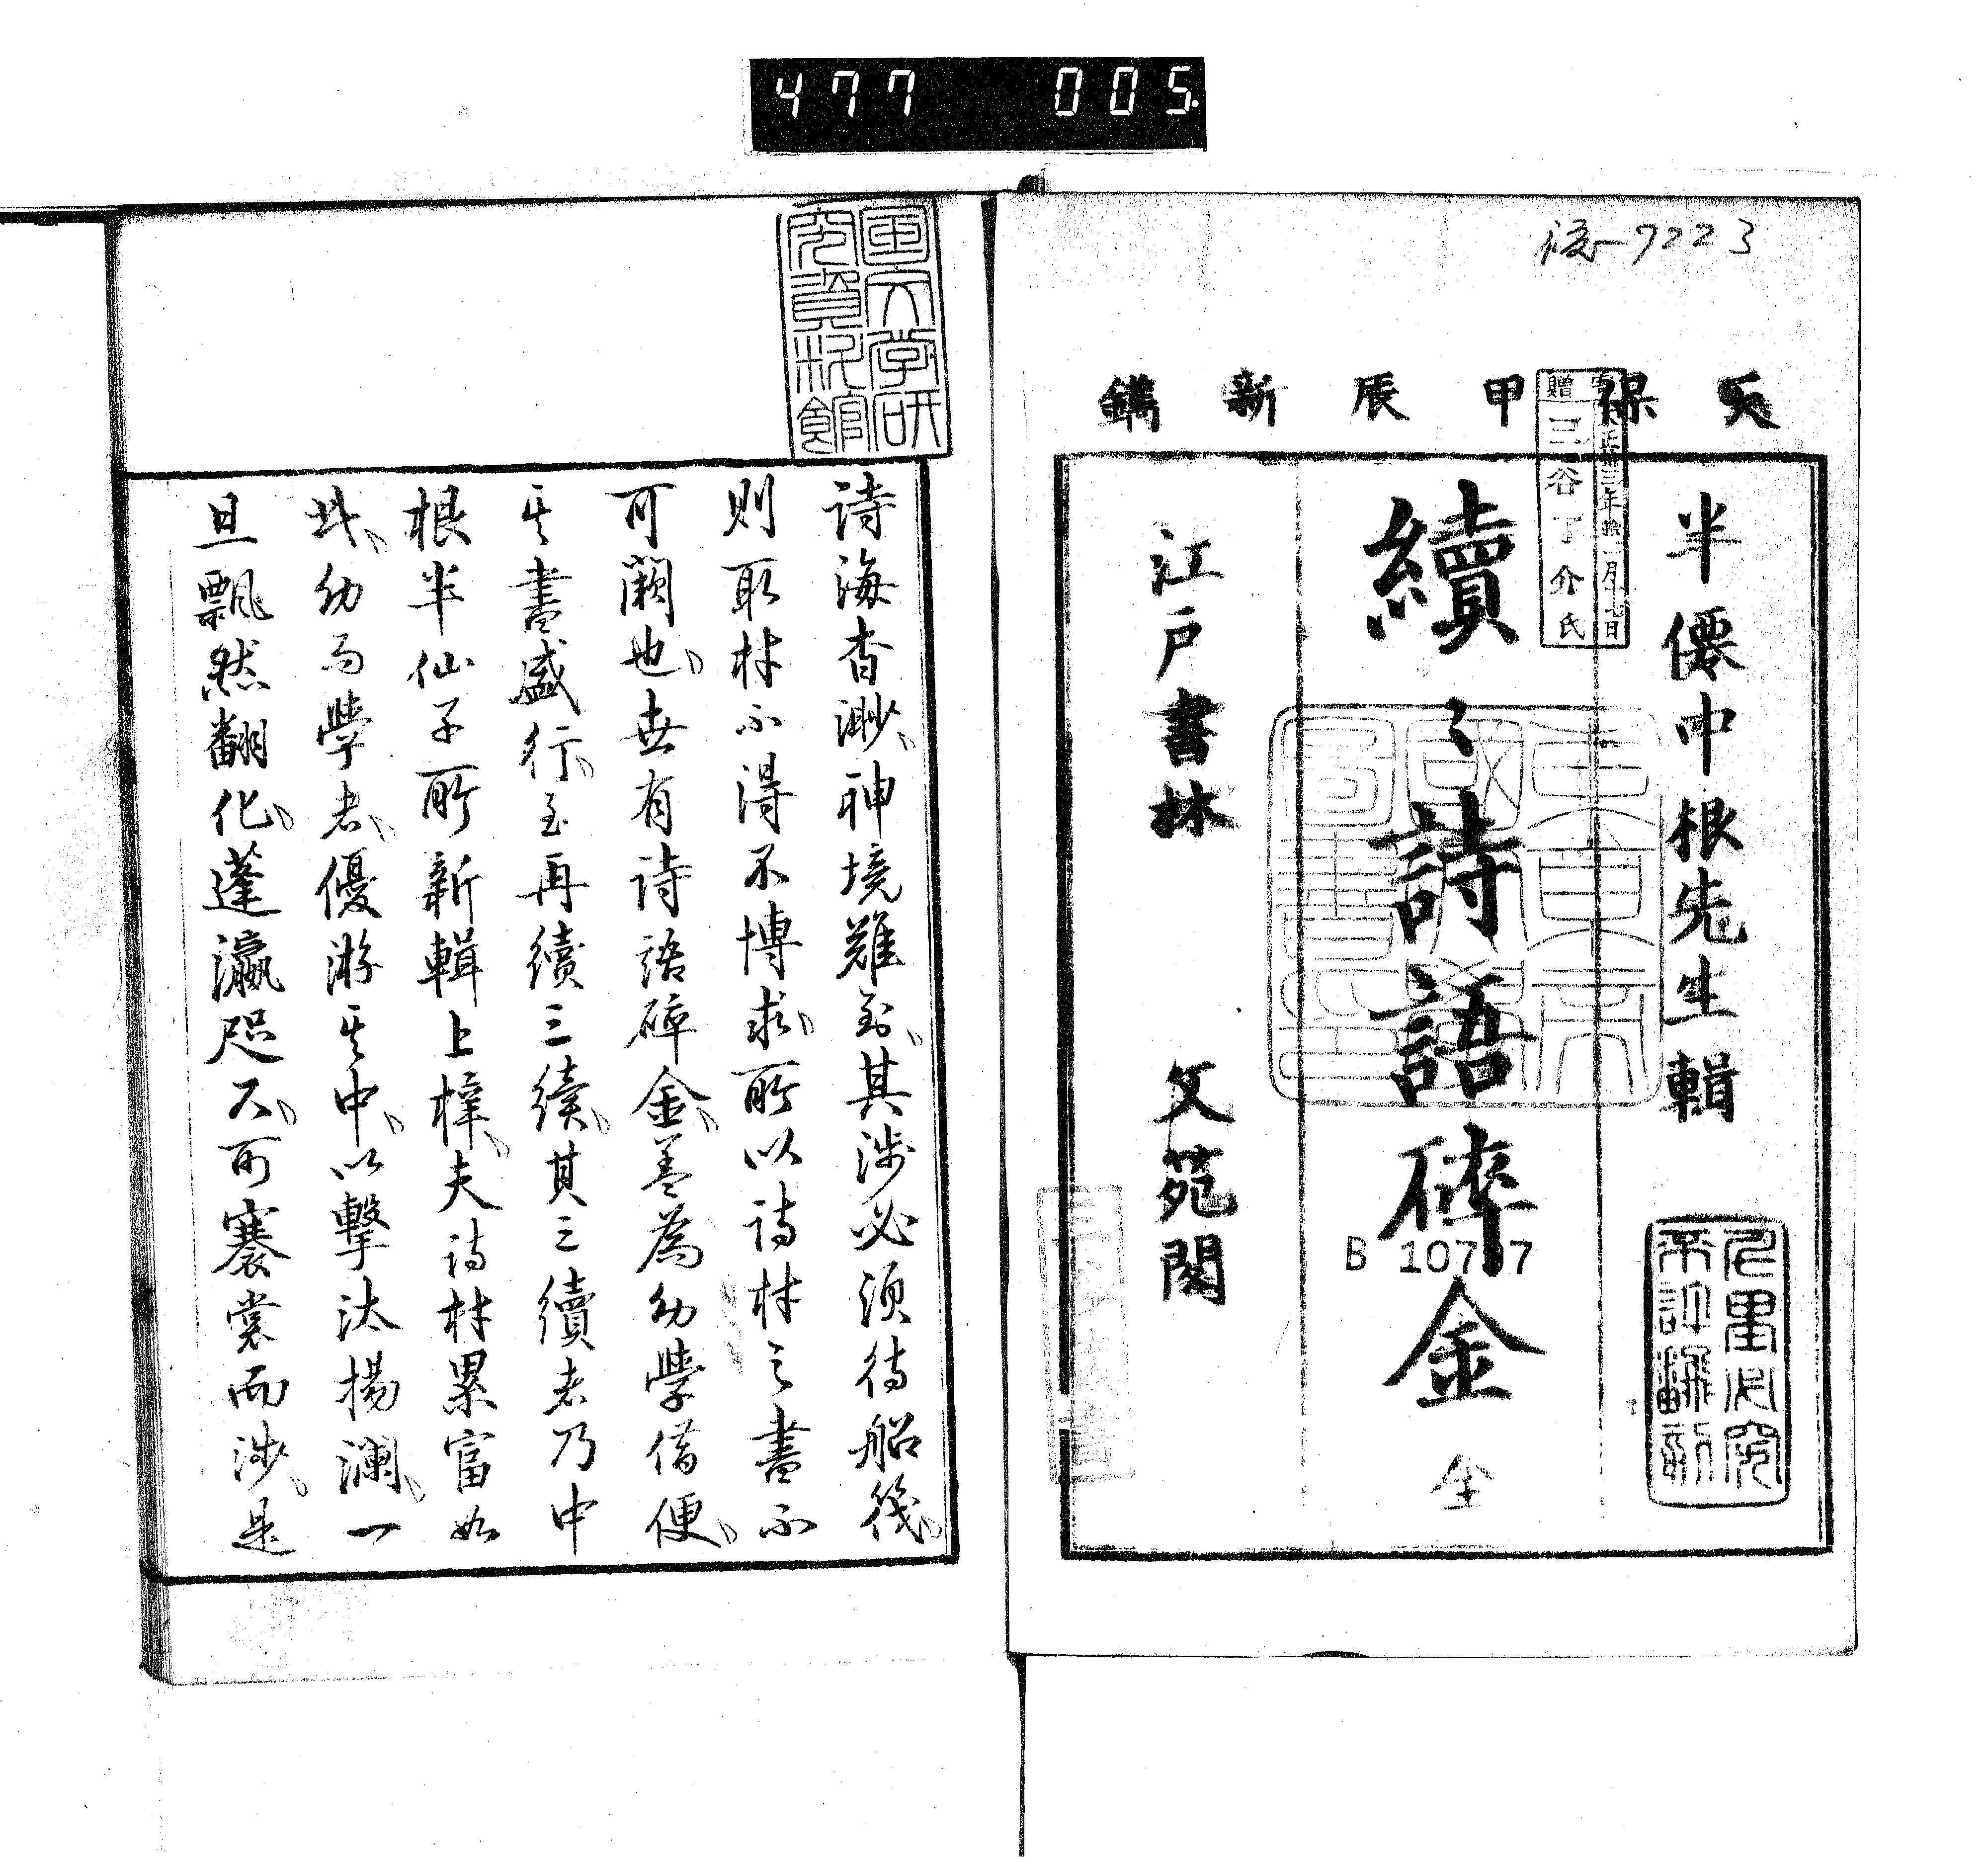 477 005
7223
天保甲辰新鐫
半僊中根先生輯
續〻詩語碎金 全
江戸書林 文苑閣
贈 三谷丁介氏
B 107 7
不許翻刻
東京帝國大學圖書印
国文学研究資料館
詩海杳渺、神境難到、其渉必須待船筏、
則取材不得不博求、所以詩材之書不
可闕也、世有詩語碎金、蓋為幼學借便、
其書盛行、至再續三續、其三續者乃中
根半仙子所新輯上梓、夫詩材累富如
此、幼而學者、優游其中、以擊汰揚瀾、一
旦飄然翻化、蓬瀛咫尺、可褰裳而渉、是